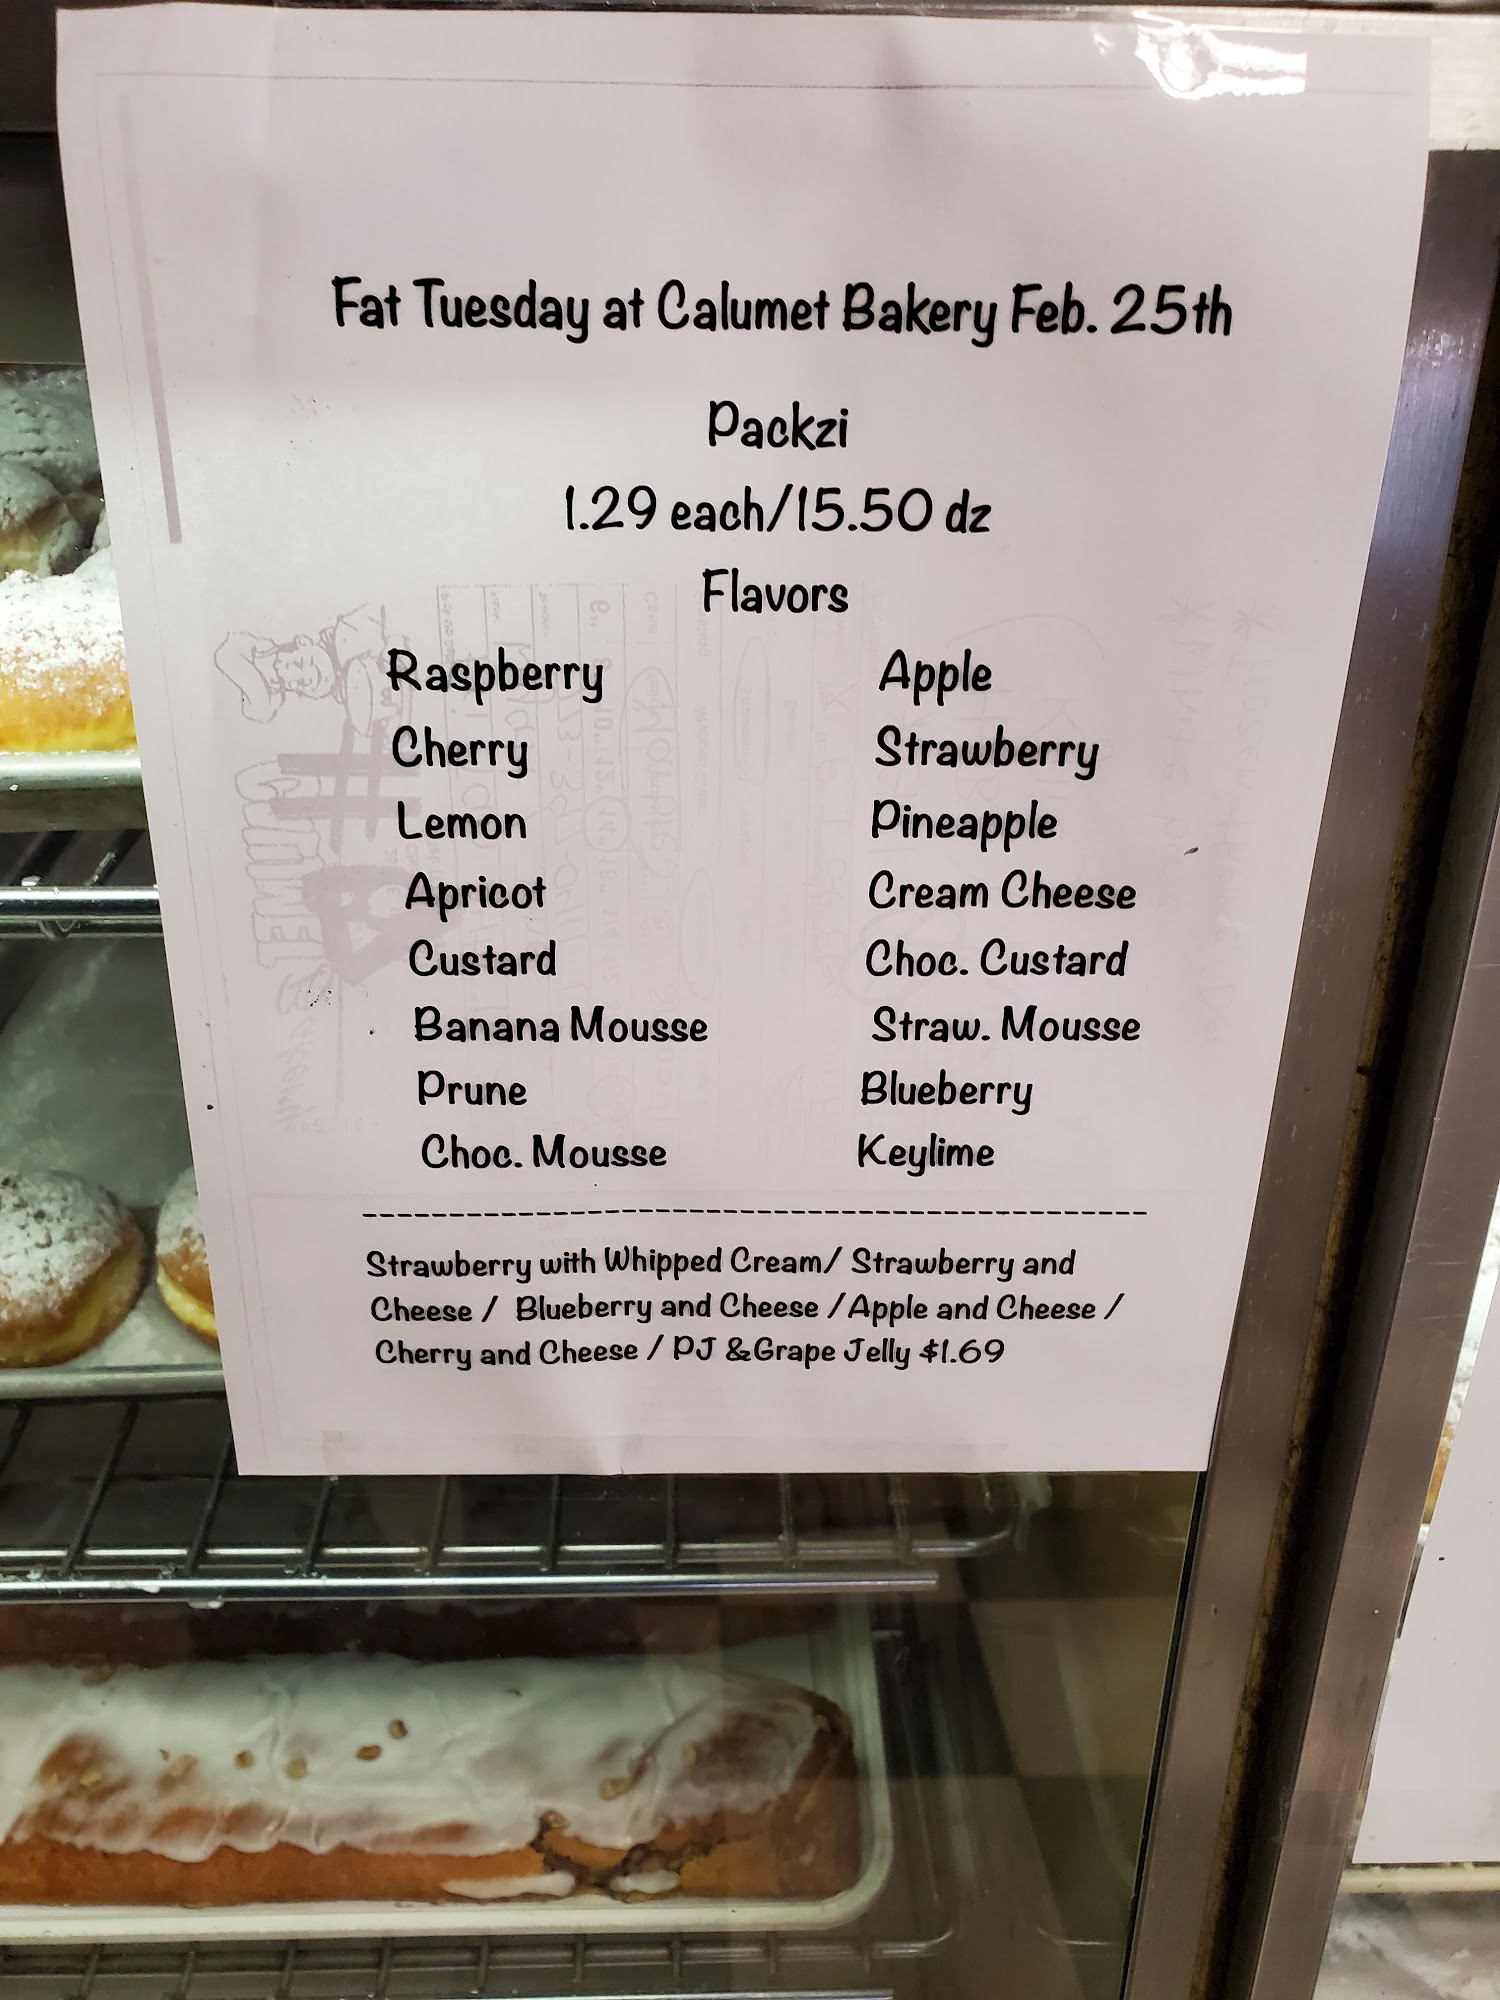 Fat Tuesday at Calumet Bakery Feb. 25th
Packzi
1.29 each/15.50 dz
Flavors
Raspberry Apple
Cherry Strawberry
Lemon Pineapple
Apricot Cream Cheese
Custard Choc. Custard
Banana Mousse Straw. Mousse
Prune Blueberry
Choc. Mousse Keylime
Strawberry with Whipped Cream/ Strawberry and
Cheese / Blueberry and Cheese /Apple and Cheese /
Cherry and Cheese / PJ &Grape Jelly $1.69